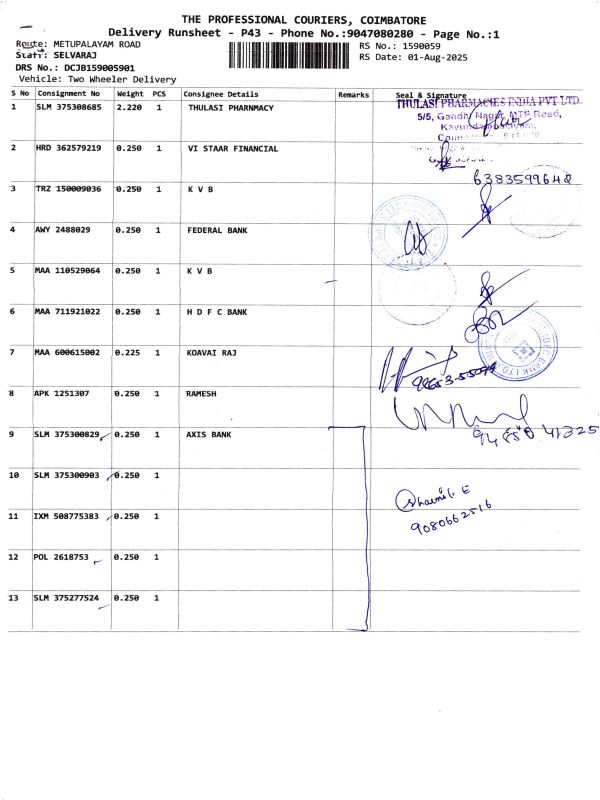 THE PROFESSIONAL COURIERS, COIMBATORE
Delivery Runsheet - P43 - Phone No.:9047080280 - Page No.:1
Route: METUPALAYAM ROAD
RS No.: 1590059
Staff: SELVARAJ
RS Date: 01-Aug-2025
DRS No.: DCJB159005901
Vehicle: Two Wheeler Delivery
S No Consignment No Weight PCS Consignee Details Remarks Seal & Signature
1 SLM 375308685 2.220 1 THULASI PHARNMACY
THULASI PHARMACIES INDIA PVT LTD
5/5, Gandhi Nagar, MTP Road,
2 HRD 362579219 0.250 1 VI STAAR FINANCIAL
6383599648
3 TRZ 150009036 0.250 1 K V B
4 AWY 2488029 0.250 1 FEDERAL BANK
5 MAA 110529064 0.250 1 K V B
6 MAA 711921022 0.250 1 H D F C BANK
7 MAA 600615002 0.225 1 KOAVAI RAJ
8 APK 1251307 0.250 1 RAMESH
94850 41325
9 SLM 375300829 0.250 1 AXIS BANK
10 SLM 375300903 0.250 1
9080662516
11 IXM 508775383 0.250 1
12 POL 2618753 0.250 1
13 SLM 375277524 0.250 1